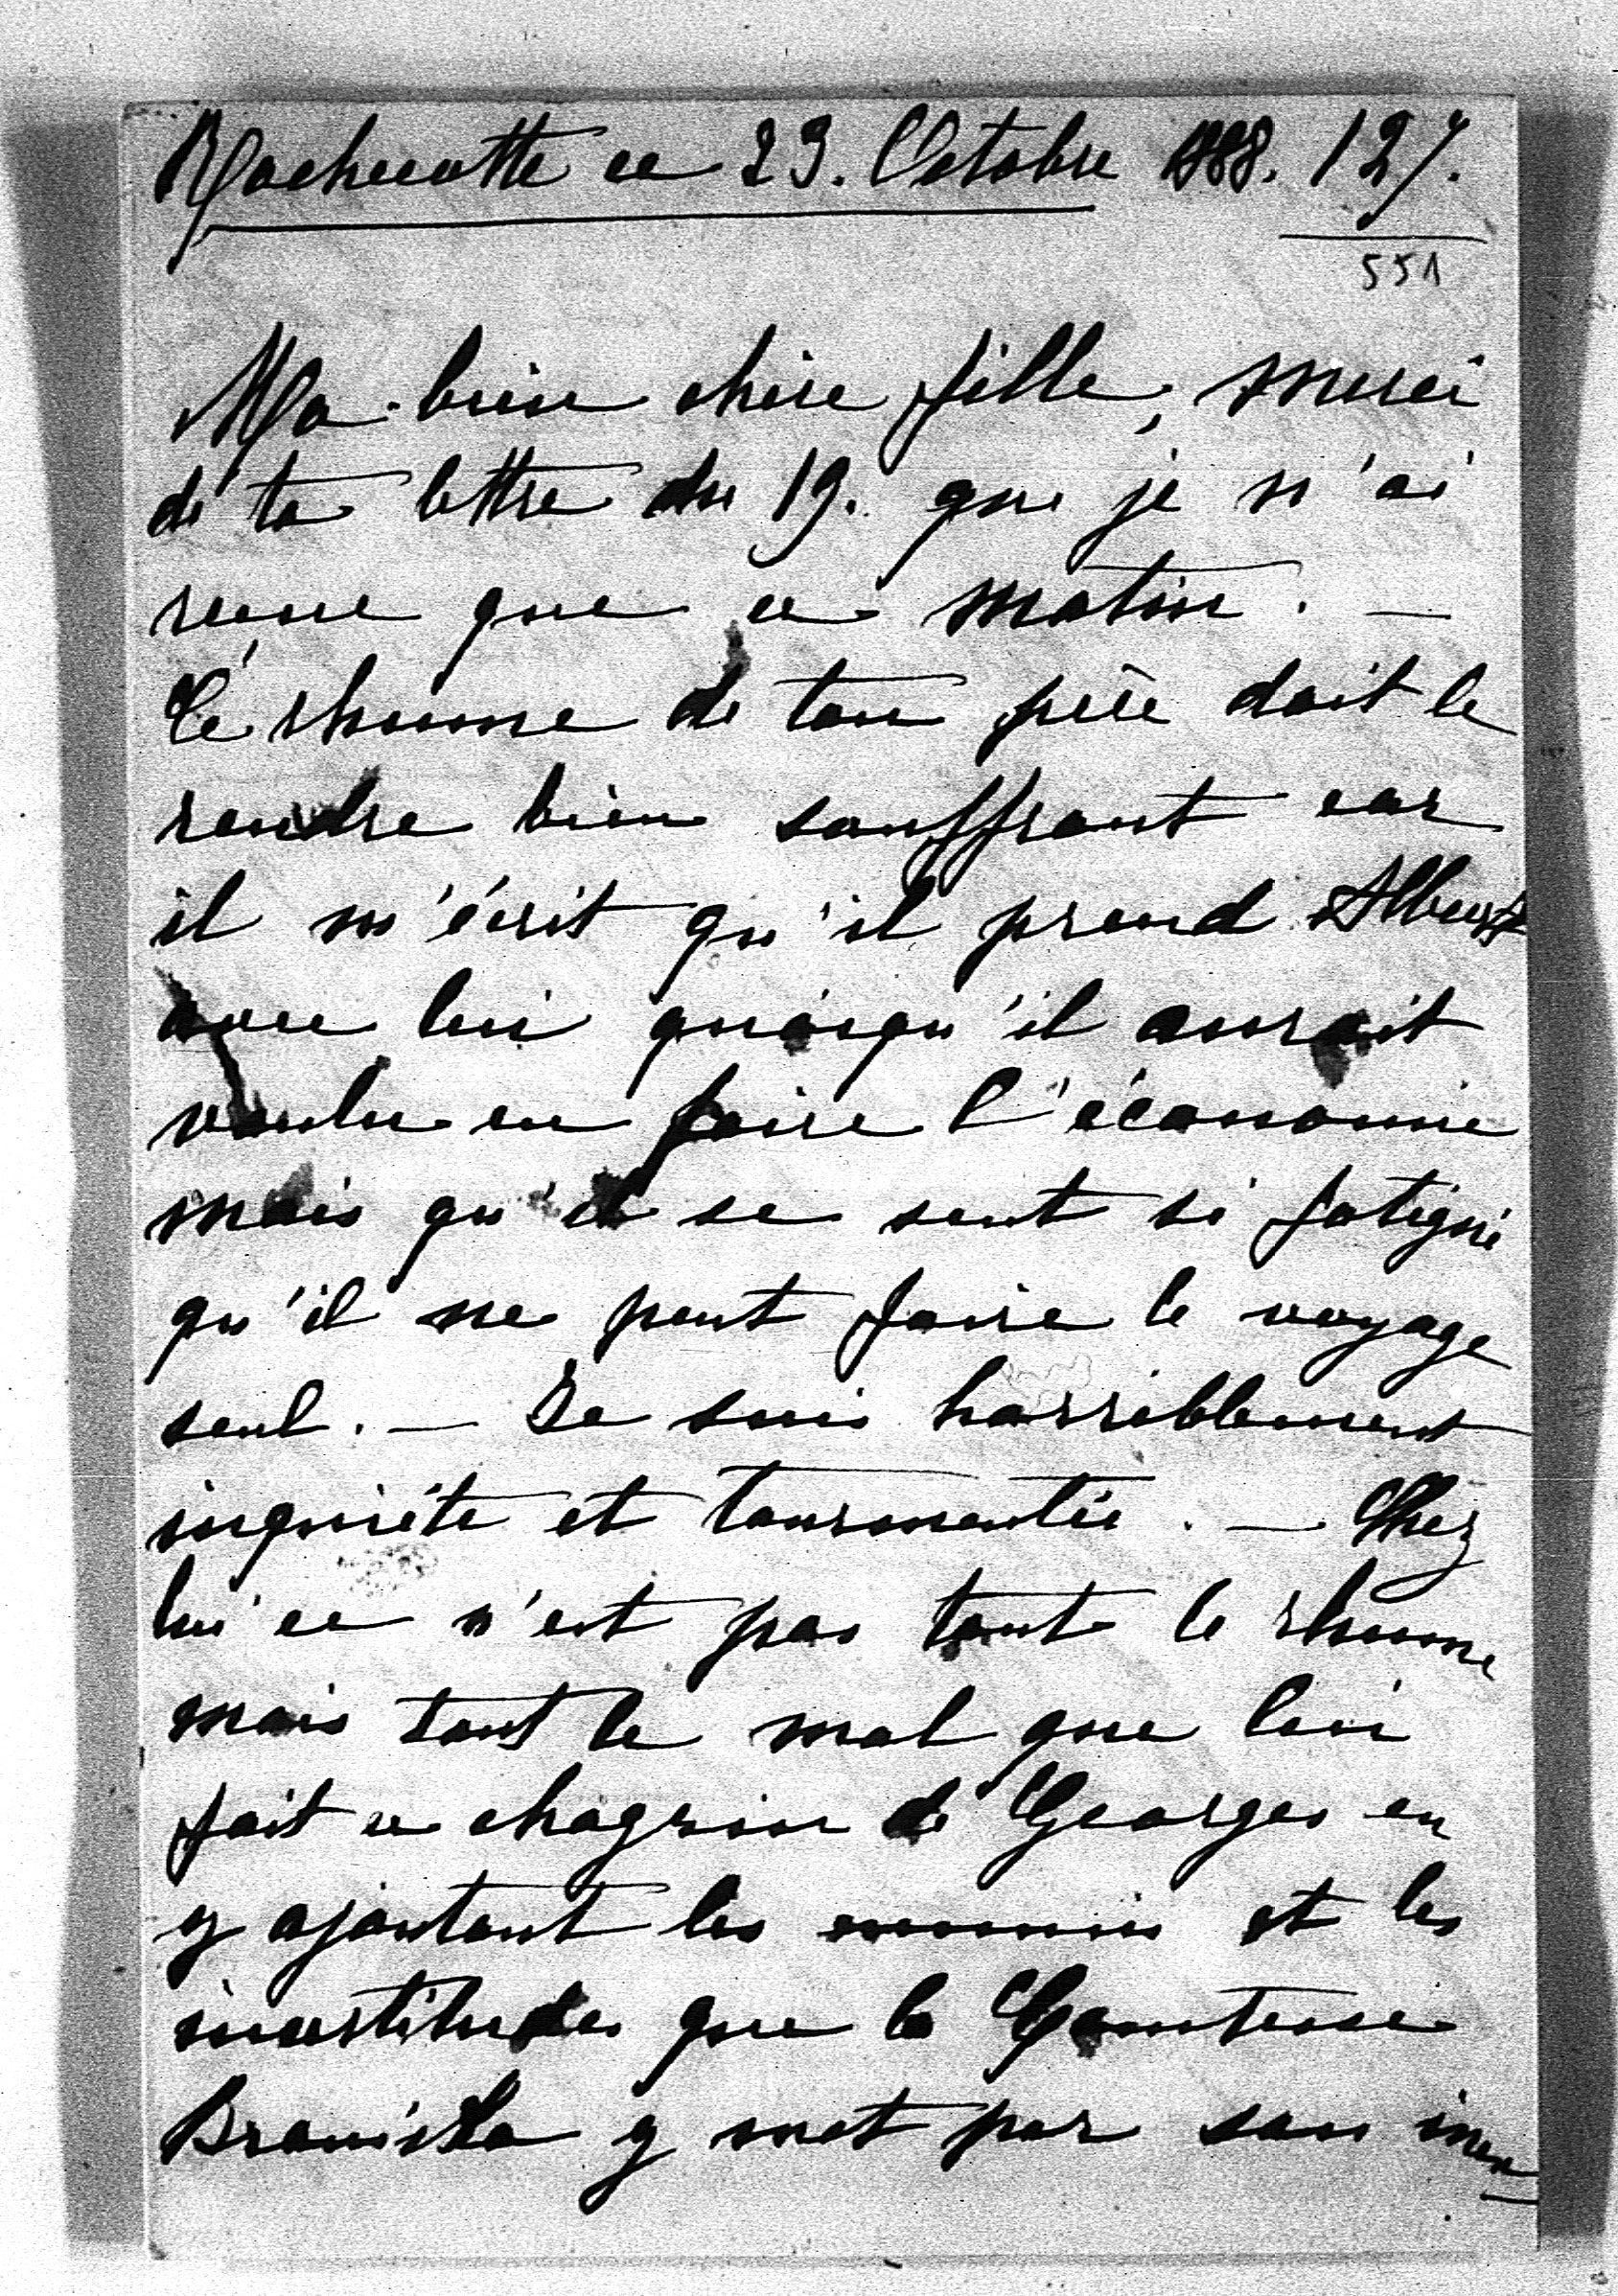 Rochecotte ce 23. Octobre 1888. 127.
551
Ma bien chère fille, merci
de ta lettre du 19. que je n'ai
reçue que ce matin. —
Le rhume de ton père doit le
rendre bien souffrant car
il m'écrit qu'il prend Albert
avec lui quoiqu'il aurait
voulu en faire l'économie
mais qu'il se sent si fatigué
qu'il ne peut faire le voyage
seul. — Je suis horriblement
inquiète et tourmentée. — Chez
lui ce n'est pas tant le rhume
mais tout le mal que lui
fait ce chagrin de Georges en
y ajoutant les ennuis et les
incertitudes que la Comtesse
Braniska y met par son inex